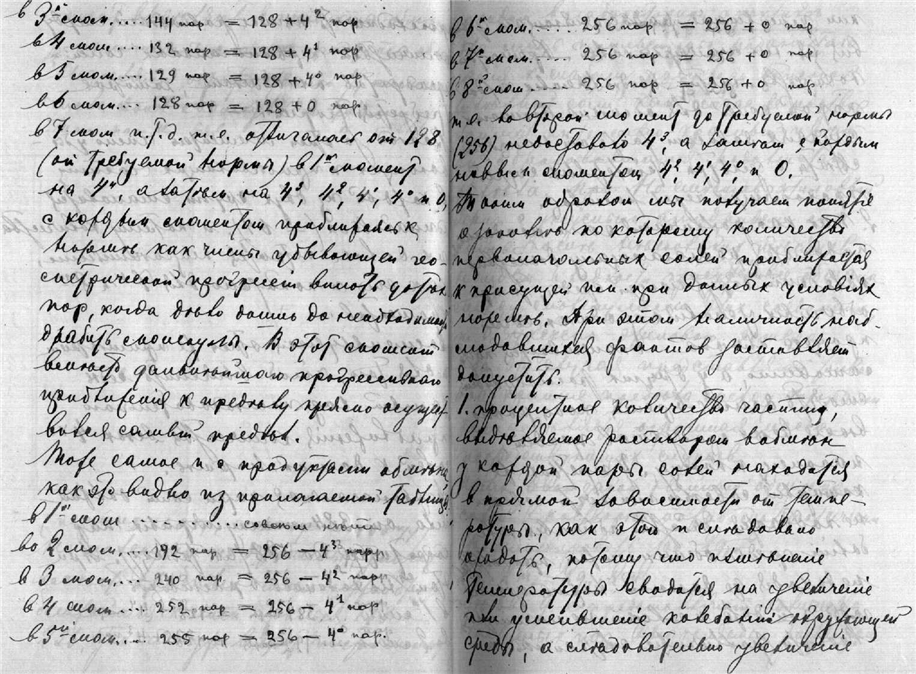 в 3й мом.... 144 пар = 128 + 4² пар
в 4 мом.... 132 пар = 128 + 4¹ пар
в 5 мом.... 129 пар = 128 + 4⁰ пар
в 6 мом.... 128 пар = 128 + 0 пар
в 7 мом и.т.д. т.е. отличалась от 128
(от требуемой нормы) в 1й момент
на 4⁴, а затем на 4³, 4², 4¹, 4⁰ и 0,
с каждым моментом приближаясь к
норме как члены убывающей гео-
метрической прогрессіи вплоть до тех
пор, когда дело дошло до
дробить молекулы. В этот момент
прогрессивного
приближенія к пределу прямо
самый предел.
Тоже самое и с продуктами обмена,
как это видно из прилагаемой таблицы
в 1й мом ............ совсем
во 2 мом.... 192 пар = 256 – 4³ пар.
в 3 мом.... 240 пар = 256 – 4² пар
в 4 мом.... 252 пар = 256 – 4¹ пар
в 5й мом.... 255 пар = 256 – 4⁰ пар.
в 6й мом..... 256 пар = 256 + 0 пар
в 7й мом..... 256 пар = 256 + 0 пар
в 8й мом..... 256 пар = 256 + 0 пар
т.е. во второй момент до требуемой нормы
(256) недоставало 4³, а затем с каждым
новым моментом 4², 4¹, 4⁰, и 0.
Таким образом мы получаем понятіе
о законе по которому количество
первоначальных солей приближается
к присущей им при данных условіях
норме. При этом наличность наб-
людавшихся фактов заставляет
допустить:
1. процентное количество частиц,
выделяемое раствором в обмен
у каждой пары солей находится
в прямой зависимости от темпе-
ратуры, как этого и следовало
ожидать, потому что измененіе
температуры сводится на увеличеніе
или уменьшеніе колебаній окружающей
среды, а следовательно увеличеніе